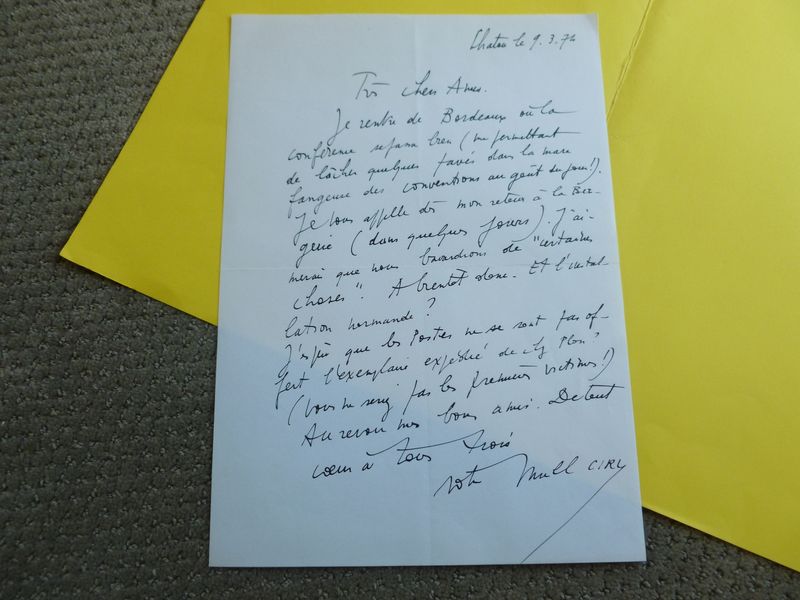 Chatou le 9.3.74
Très chers Amis.
Je rentre de Bordeaux où la
conférence se passa bien (me permettant
de lâcher quelques pavés dans la mare
fangeuse des conventions au goût du jour!).
Je vous appelle dès mon retour à la Ber-
gerie (dans quelques jours). J'ai-
merai que nous bavardions de "certaines
choses". A bientôt donc. Et l'instal-
lation normande?
J'espère que les Postes ne se sont pas of-
fert l'exemplaire expédié de chez Plon?
(vous ne seriez pas les premières victimes!)
Au revoir mes bons amis. De tout
coeur à tous trois
votre CIRY